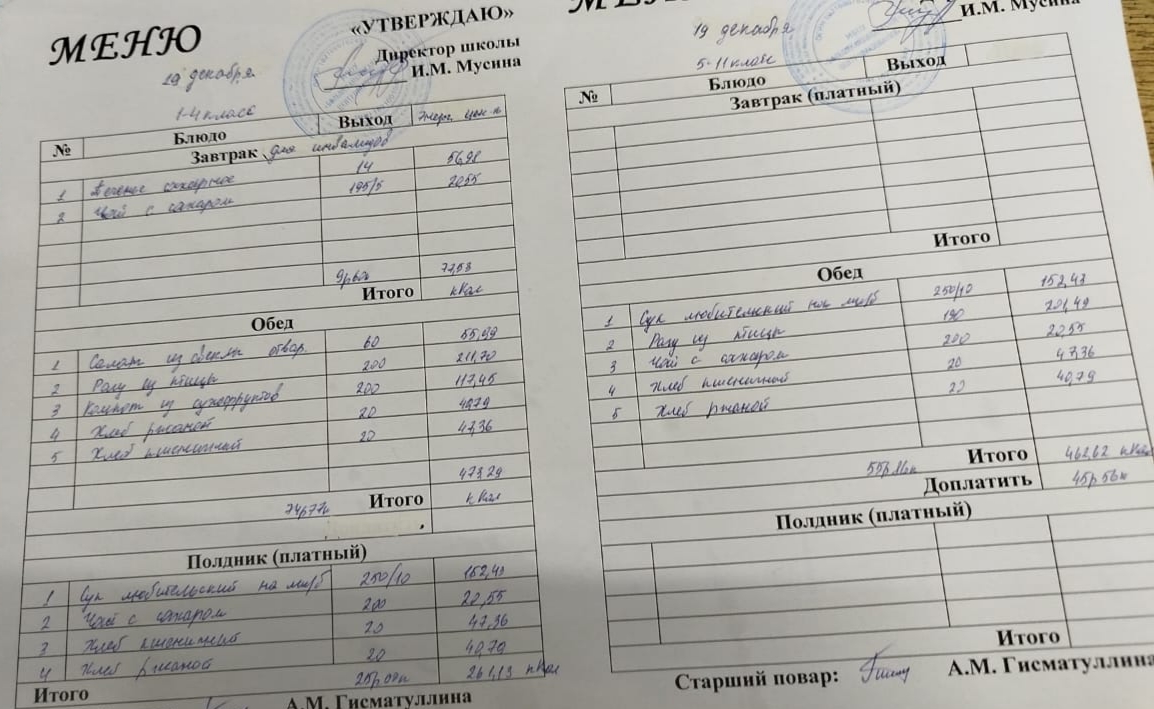 МЕНЮ
«УТВЕРЖДАЮ»
Директор школы
И.М. Мусина
19 декабря
1-4 класс
№ Блюдо Выход Энерг. цен-ть
Завтрак для инвалидов
1 Печенье сахарное 14 56,98
2 Чай с сахаром 195/5 20,55
77,53
Итого кКал
Обед
1 Салат из свеклы отвар. 60 55,99
2 Рагу из птицы 200 211,70
3 Компот из сухофруктов 200 117,45
4 Хлеб ржаной 20 40,79
5 Хлеб пшеничный 20 47,36
473,29
74р77к Итого кКал
Полдник (платный)
1 Суп любительский на м/к/б 250/10 152,43
2 Чай с сахаром 200 20,55
3 Хлеб пшеничный 20 47,36
4 Хлеб ржаной 20 40,79
Итого 261,13 кКал
А.М. Гисматуллина
И.М. Мусина
19 декабря
5-11 класс
№ Блюдо Выход
Завтрак (платный)
Итого
Обед
1 Суп любительский на 250/10 152,43
2 Рагу из птицы 190 201,49
3 Чай с сахаром 200 20,55
4 Хлеб пшеничный 20 47,36
5 Хлеб ржаной 20 40,79
55р16к Итого 462,62 кКал
Доплатить 45р56к
Полдник (платный)
Итого
Старший повар: А.М. Гисматуллина